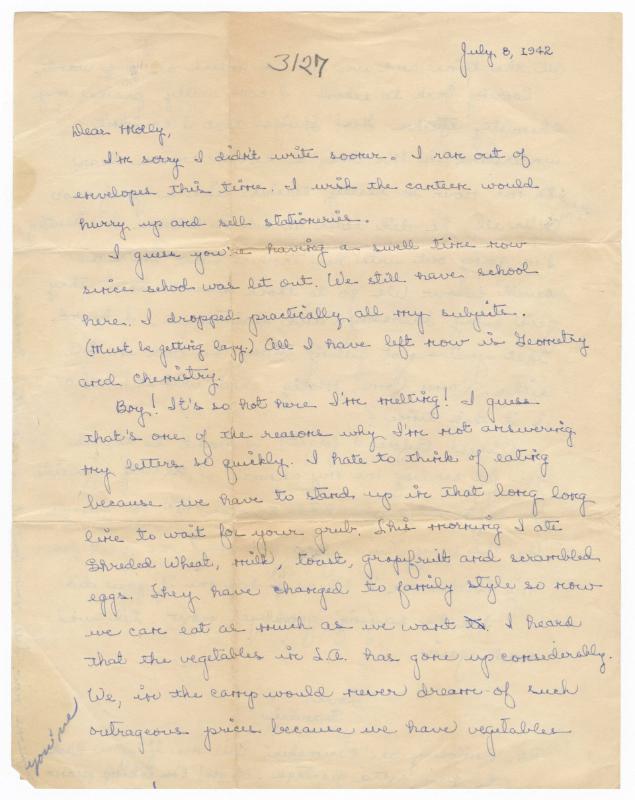 July 8, 1942
3127
Dear Molly,
I'm sorry I didn't write sooner. I ran out of
envelopes this time. I wish the canteen would
hurry up and sell stationeries.
I guess you're having a swell time now
since school was let out. We still have school
here. I dropped practically all my subjects.
(Must be getting lazy.) All I have left now is Geometry
and chemistry.
Boy! It's so hot here I'm melting! I guess
that's one of the reasons why I'm not answering
my letters so quickly. I hate to think of eating
because we have to stand up in that long long
line to wait for your grub. This morning I ate
Shreded Wheat, milk, toast, grapifruit and scrambled
eggs. They have changed to family style so now
we can eat as much as we want. I heard
that the vegetables in L.A. has gone up considerably.
We, in the camp would never dream of such
outrageous prices because we have vegetables
you're